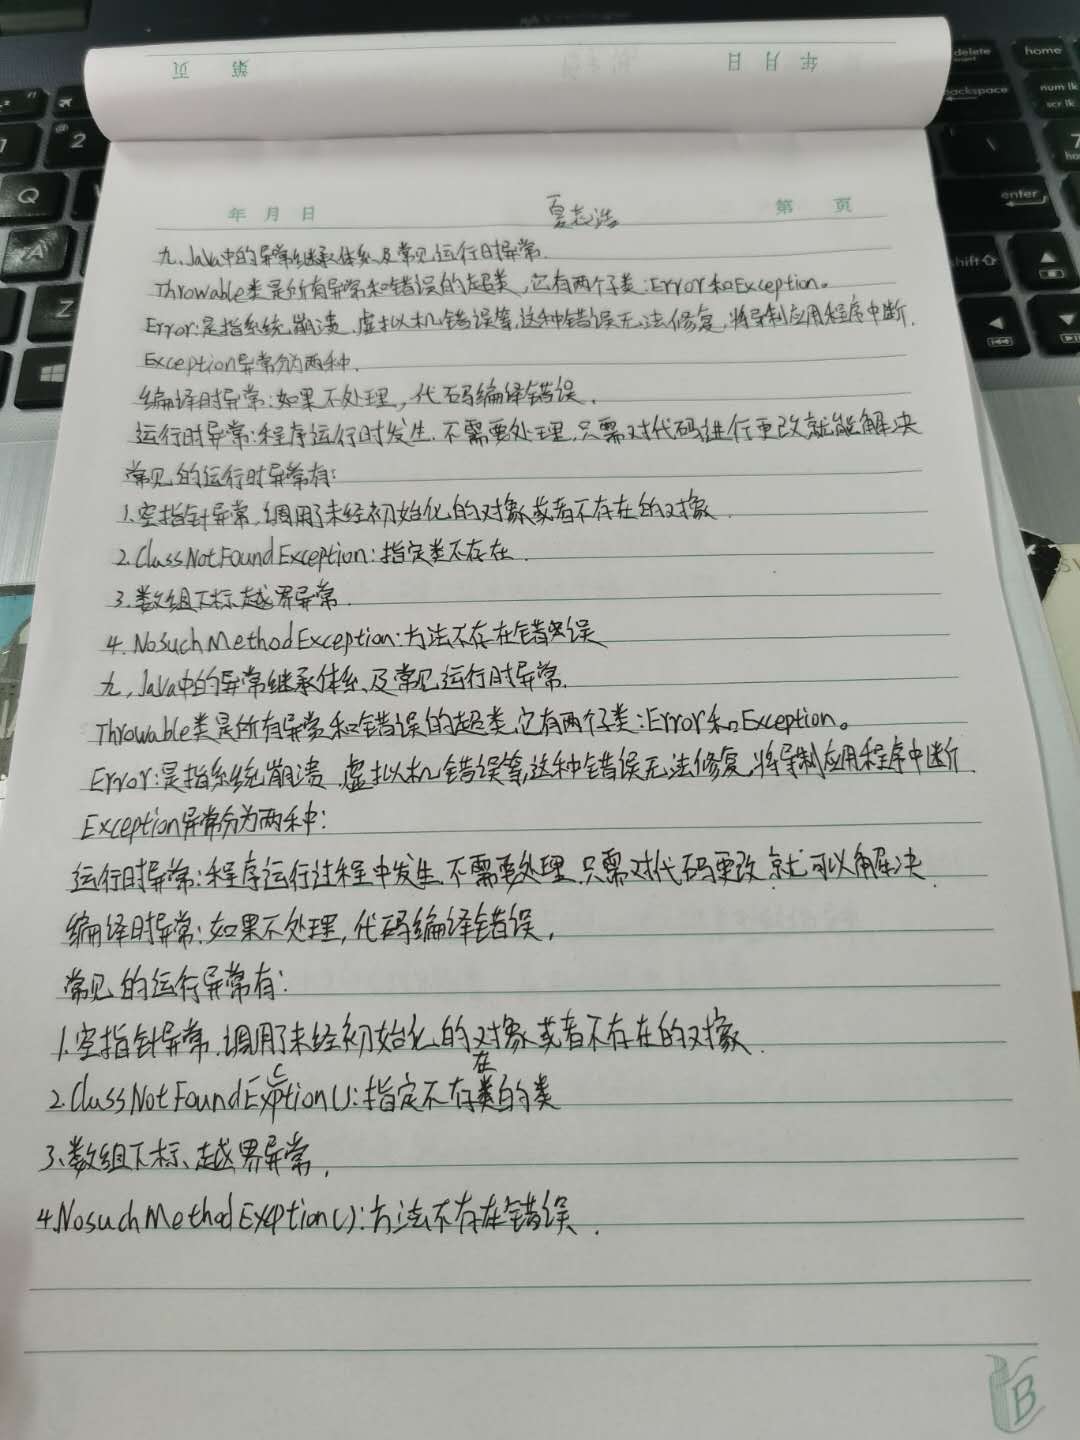 页 第 日 月 年
delete
home
backspace
num lk
scr lk
2
7
Q
enter
A
shift
Z
年 月 日 夏志浩 第 页
九、Java中的异常继承体系及常见运行时异常.
Throwable类是所有异常和错误的超类,它有两个子类:Error和Exception。
Error:是指系统崩溃.虚拟机错误等,这种错误无法修复,将导制应用程序中断.
Exception异常分为两种.
编译时异常:如果不处理,代码编译错误.
运行时异常:程序运行时发生.不需要处理,只需对代码进行更改就能解决
常见的运行时异常有:
1.空指针异常,调用了未经初始化的对象或者不存在的对象.
2.ClassNotFoundException:指定类不存在.
3.数组下标越界异常.
4.NosuchMethodException:方法不存在错误
九,Java中的异常继承体系及常见运行时异常.
Throwable类是所有异常和错误的超类,它有两个子类:Error和Exception。
Error:是指系统崩溃.虚拟机错误等,这种错误无法修复,将导制应用程序中断.
Exception异常分为两种:
运行时异常:程序运行过程中发生.不需要处理,只需对代码更改就可以解决.
编译时异常:如果不处理,代码编译错误,
常见的运行异常有:
1.空指针异常.调用了未经初始化的对象或者不存在的对象.
2.ClassNotFoundException():指定不存在的类
3、数组下标、越界异常,
4.NosuchMethodExeption():方法不存在错误.
B